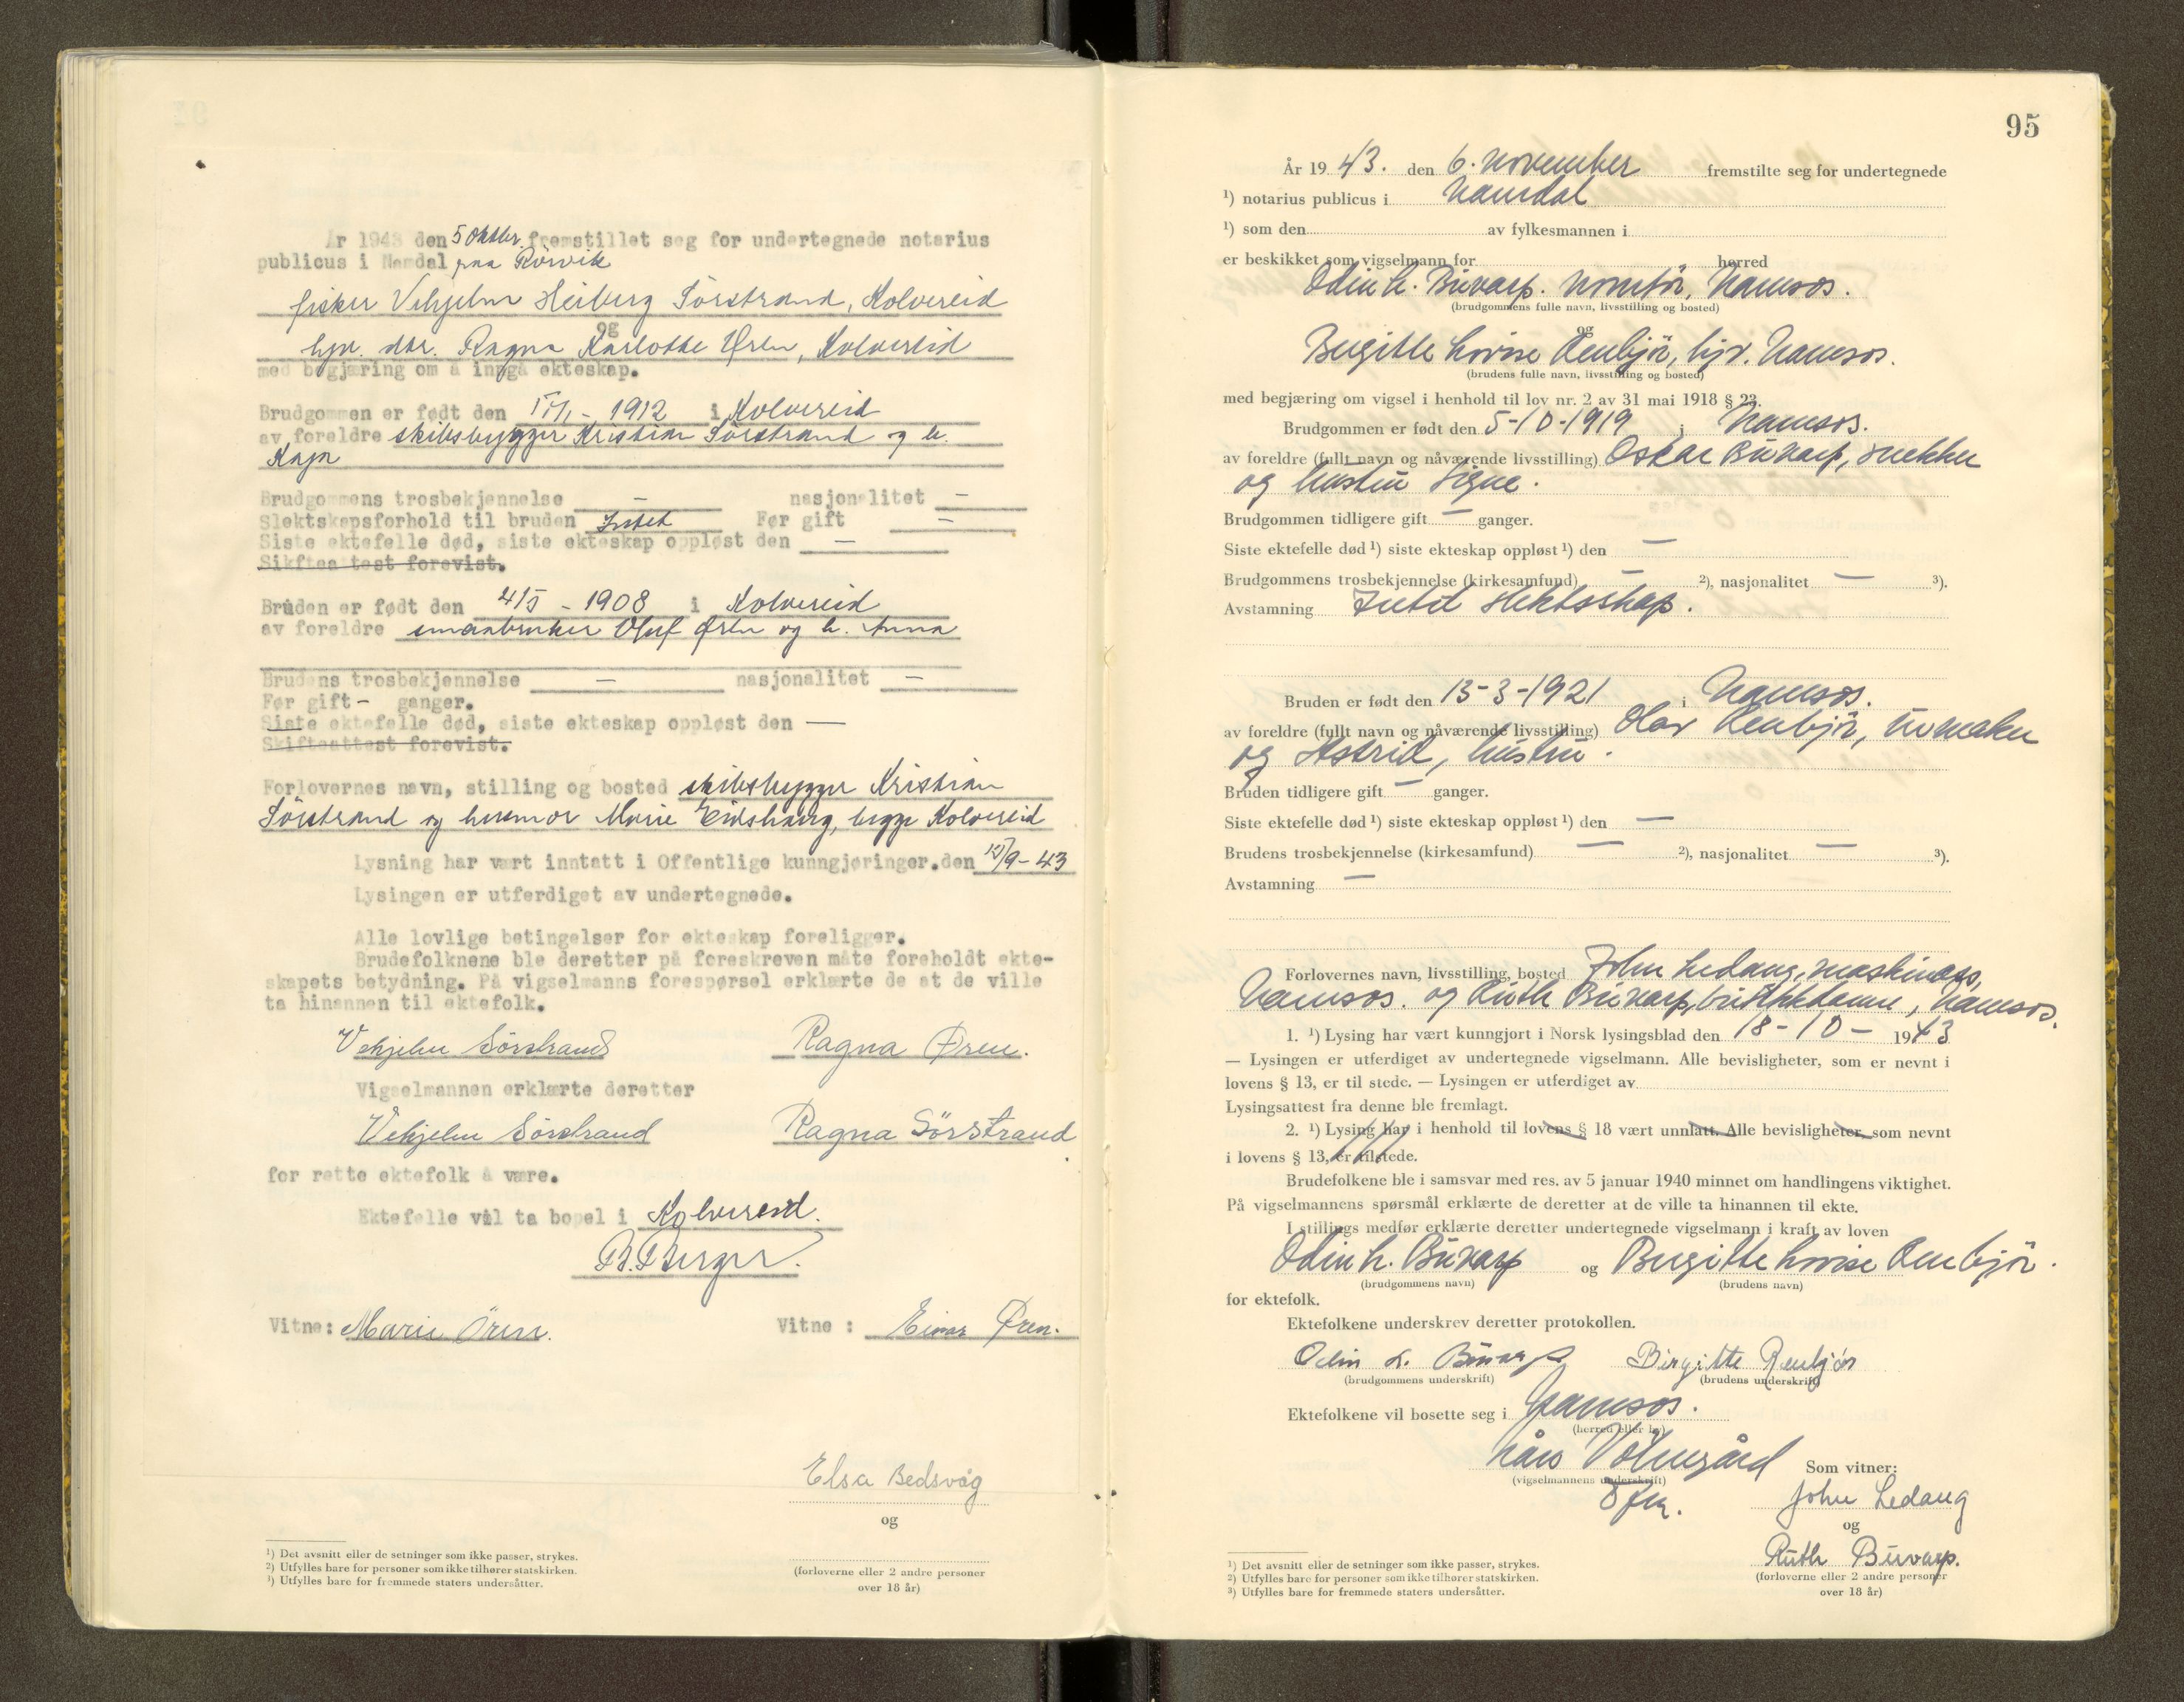 År 1943 den 5 oktbr. fremstillet seg for undertegnede notarius
publicus i Namdal paa Rörvik
fisker Vehjelm Heiberg Sörstrand, Kolvereid
og
hjv. dtr. Ragna Karlotte Øren, Kolvereid
med begjæring om å inngå ekteskap.
Brudgommen er født den - 1912 i Kolvereid
av foreldre skibsbygger Kristian Sörstrand og h.
Kaja
Brudgommens trosbekjennelse — nasjonalitet —
Slektskapsforhold til bruden Intet Før gift —
Siste ektefelle død, siste ekteskap oppløst den —
Sikfteattest forevist.
Bruden er født den 4/5 - 1908 i Kolvereid
av foreldre smaabruker Oluf Øren og h. Anna
Brudens trosbekjennelse — nasjonalitet —
Før gift - ganger.
Siste ektefelle død, siste ekteskap oppløst den —
Skifteattest forevist.
Forlovernes navn, stilling og bosted skibsbygger Kristian
Sörstrand og husmor Marie begge Kolvereid
Lysning har vært inntatt i Offentlige kunngjøringer.den /9-43
Lysingen er utferdiget av undertegnede.
Alle lovlige betingelser for ekteskap foreligger.
Brudefolknene ble deretter på foreskreven måte foreholdt ekte-
skapets betydning. På vigselmanns forespørsel erklærte de at de ville
ta hinannen til ektefolk.
Vehjelm Sörstrand Ragna Øren.
Vigselmannen erklærte deretter
Vehjelm Sörstrand Ragna Sörstrand.
for rette ektefolk å være.
Ektefelle vil ta bopel i Kolvereid.
B. Berger.
Vitne: Marie Ören. Vitne : Einar Øren.
Elsa Bedsvåg
og
(forloverne eller 2 andre personer
over 18 år)
¹) Det avsnitt eller de setninger som ikke passer, strykes.
²) Utfylles bare for personer som ikke tilhører statskirken.
³) Utfylles bare for fremmede staters undersåtter.
95
År 1943. den 6. november fremstilte seg for undertegnede
¹) notarius publicus i Namdal
¹) som den av fylkesmannen i
er beskikket som vigselmann for herred
Odin L. Buvarp. montör, Namsos.
(brudgommens fulle navn, livsstilling og bosted)
og
Birgitte Lovise Renbjör, hjv. Namsos.
(brudens fulle navn, livsstilling og bosted)
med begjæring om vigsel i henhold til lov nr. 2 av 31 mai 1918 § 23.
Brudgommen er født den 5-10-1919 i Namsos.
av foreldre (fullt navn og nåværende livsstilling) Oskar Buvarp, snekker
og hustru Signe.
Brudgommen tidligere gift — ganger.
Siste ektefelle død ¹) siste ekteskap oppløst ¹) den —
Brudgommens trosbekjennelse (kirkesamfund) — ²), nasjonalitet — ³).
Avstamning Intet slektsskap.
Bruden er født den 13-3-1921 i Namsos.
av foreldre (fullt navn og nåværende livsstilling) Olav Renbjör, urmaker
og Astrid, hustru.
Bruden tidligere gift — ganger.
Siste ektefelle død ¹) siste ekteskap oppløst ¹) den —
Brudens trosbekjennelse (kirkesamfund) — ²), nasjonalitet — ³).
Avstamning —
Forlovernes navn, livsstilling, bosted John Ledang, maskinass,
Namsos. og Ruth Buvarp, butikkdame, Namsos.
1. ¹) Lysing har vært kunngjort i Norsk lysingsblad den 18-10- 1943
— Lysingen er utferdiget av undertegnede vigselmann. Alle bevisligheter, som er nevnt i
lovens § 13, er til stede. — Lysingen er utferdiget av
Lysingsattest fra denne ble fremlagt.
2. ¹) Lysing har i henhold til lovens § 18 vært unnlatt. Alle bevisligheter, som nevnt
i lovens § 13, er tilstede.
Brudefolkene ble i samsvar med res. av 5 januar 1940 minnet om handlingens viktighet.
På vigselmannens spørsmål erklærte de deretter at de ville ta hinannen til ekte.
I stillings medfør erklærte deretter undertegnede vigselmann i kraft av loven
Odin L. Buvarp og Birgitte Lovise Renbjör.
(brudgommens navn) (brudens navn)
for ektefolk.
Ektefolkene underskrev deretter protokollen.
Odin L. Buvarp Birgitte Renbjör
(brudgommens underskrift) (brudens underskrift)
Ektefolkene vil bosette seg i Namsos.
(herred eller by)
(vigselmannens underskrift)
Som vitner:
John Ledang
og
Ruth Buvarp.
(forloverne eller 2 andre personer
over 18 år)
¹) Det avsnitt eller de setninger som ikke passer, strykes.
²) Utfylles bare for personer som ikke tilhører statskirken.
³) Utfylles bare for fremmede staters undersåtter.